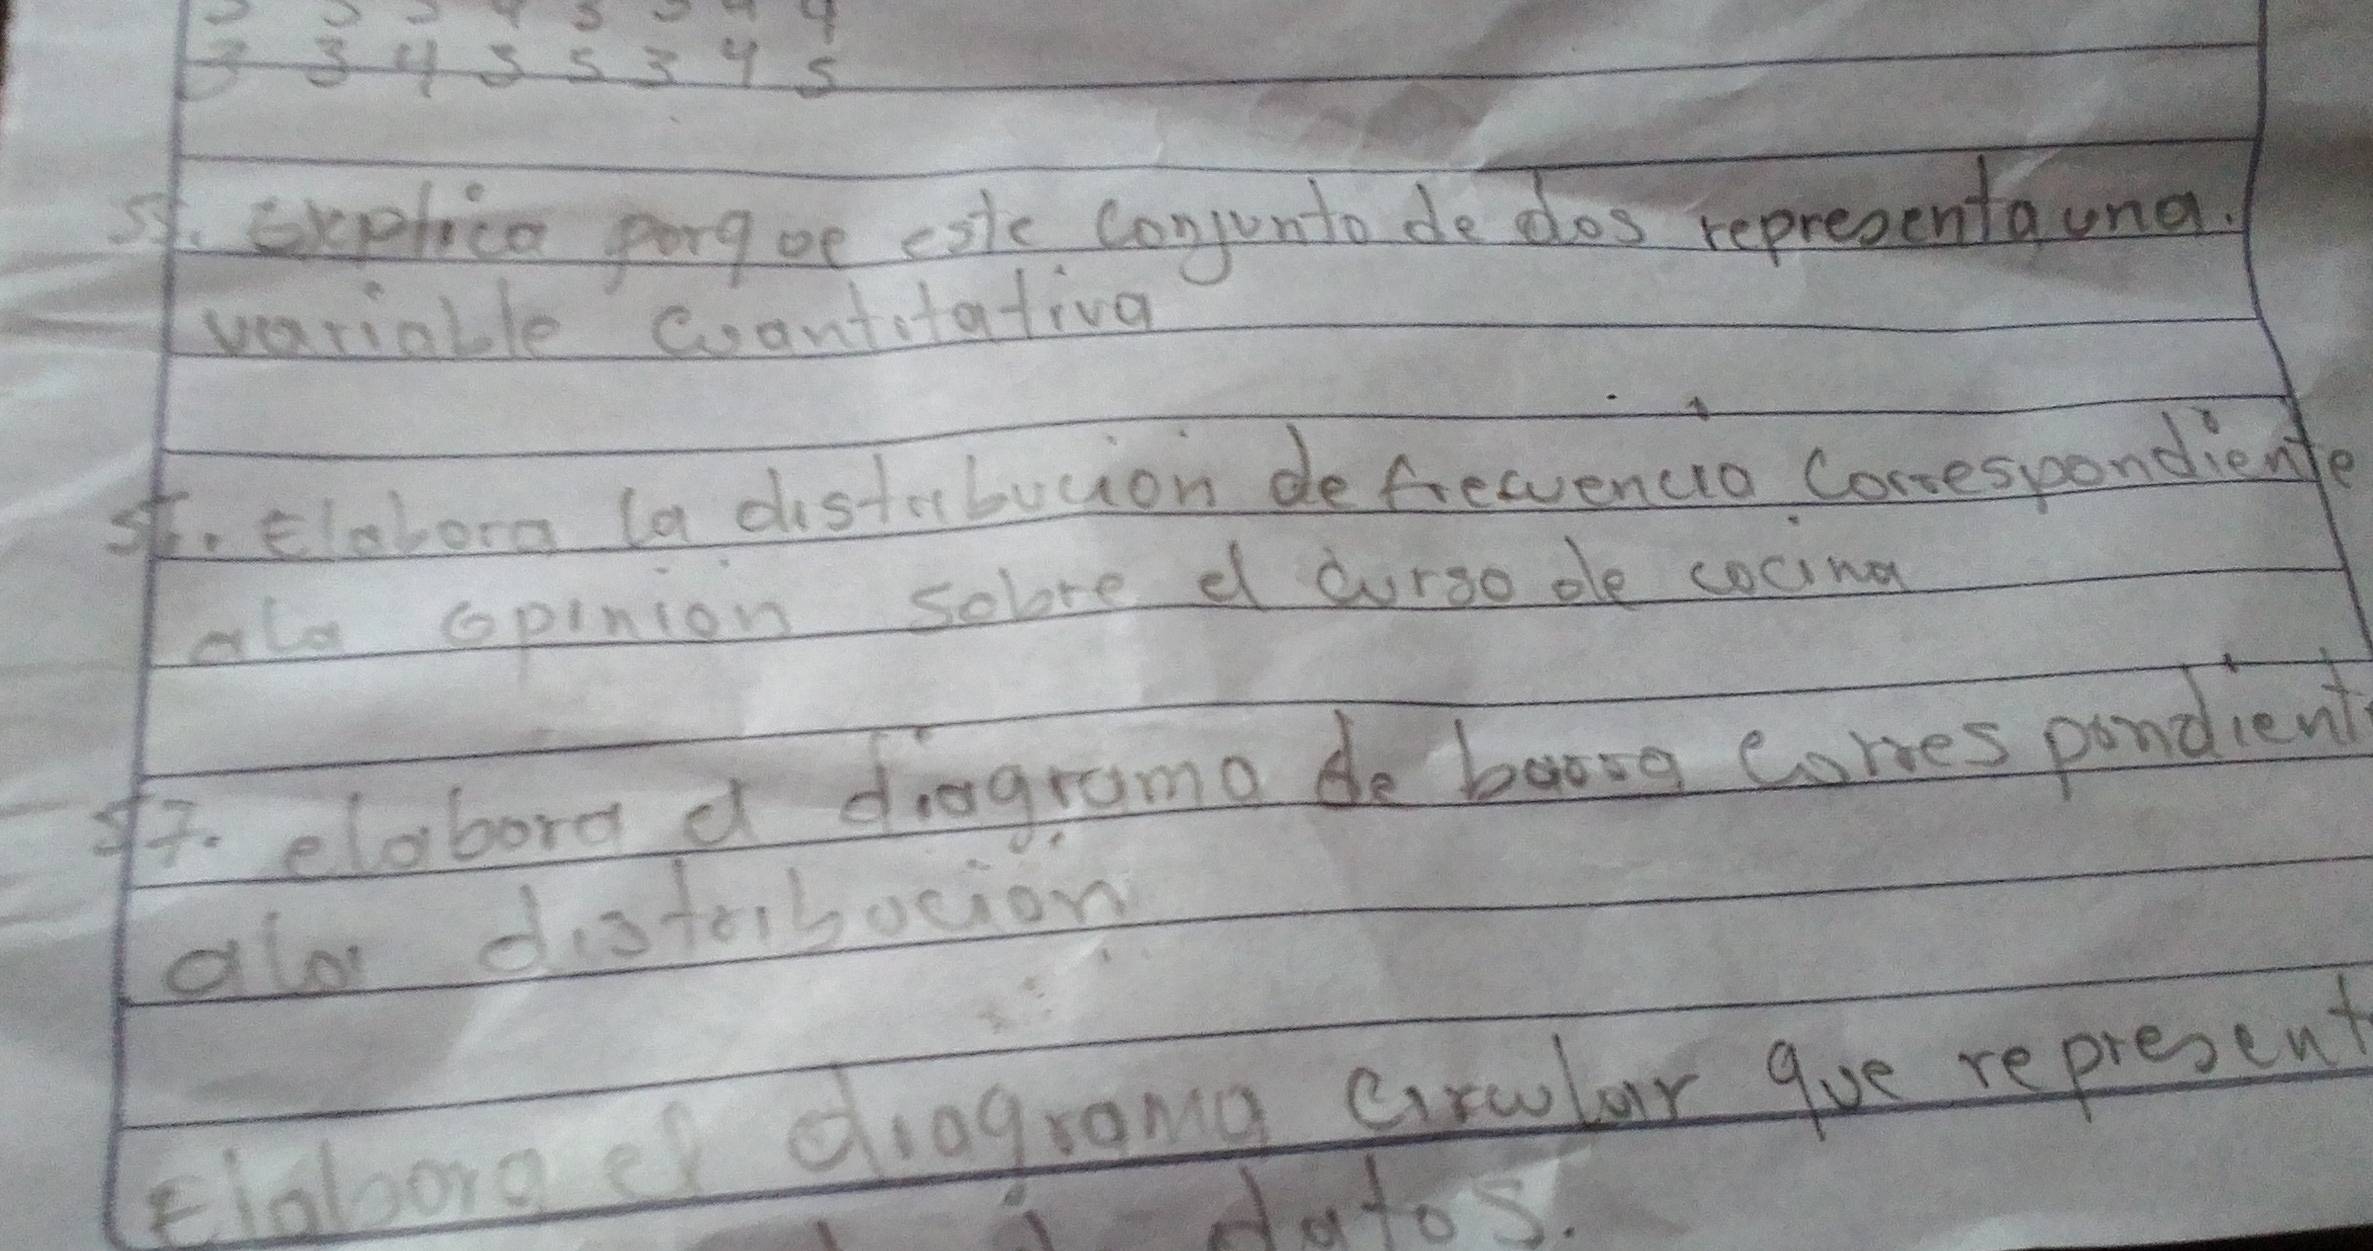 3 4 5 5 3 4 5
55. Explica porque este conjunto de dos representa una.
variable cuantitativa
56. Elabora la distribucion de frecuencia correspondiente
ala opinion sobre el curso de cocina
57. elabora el diagrama de barra correspondient
ala distribucion
Elabora el diagrama circular que represent
datos.